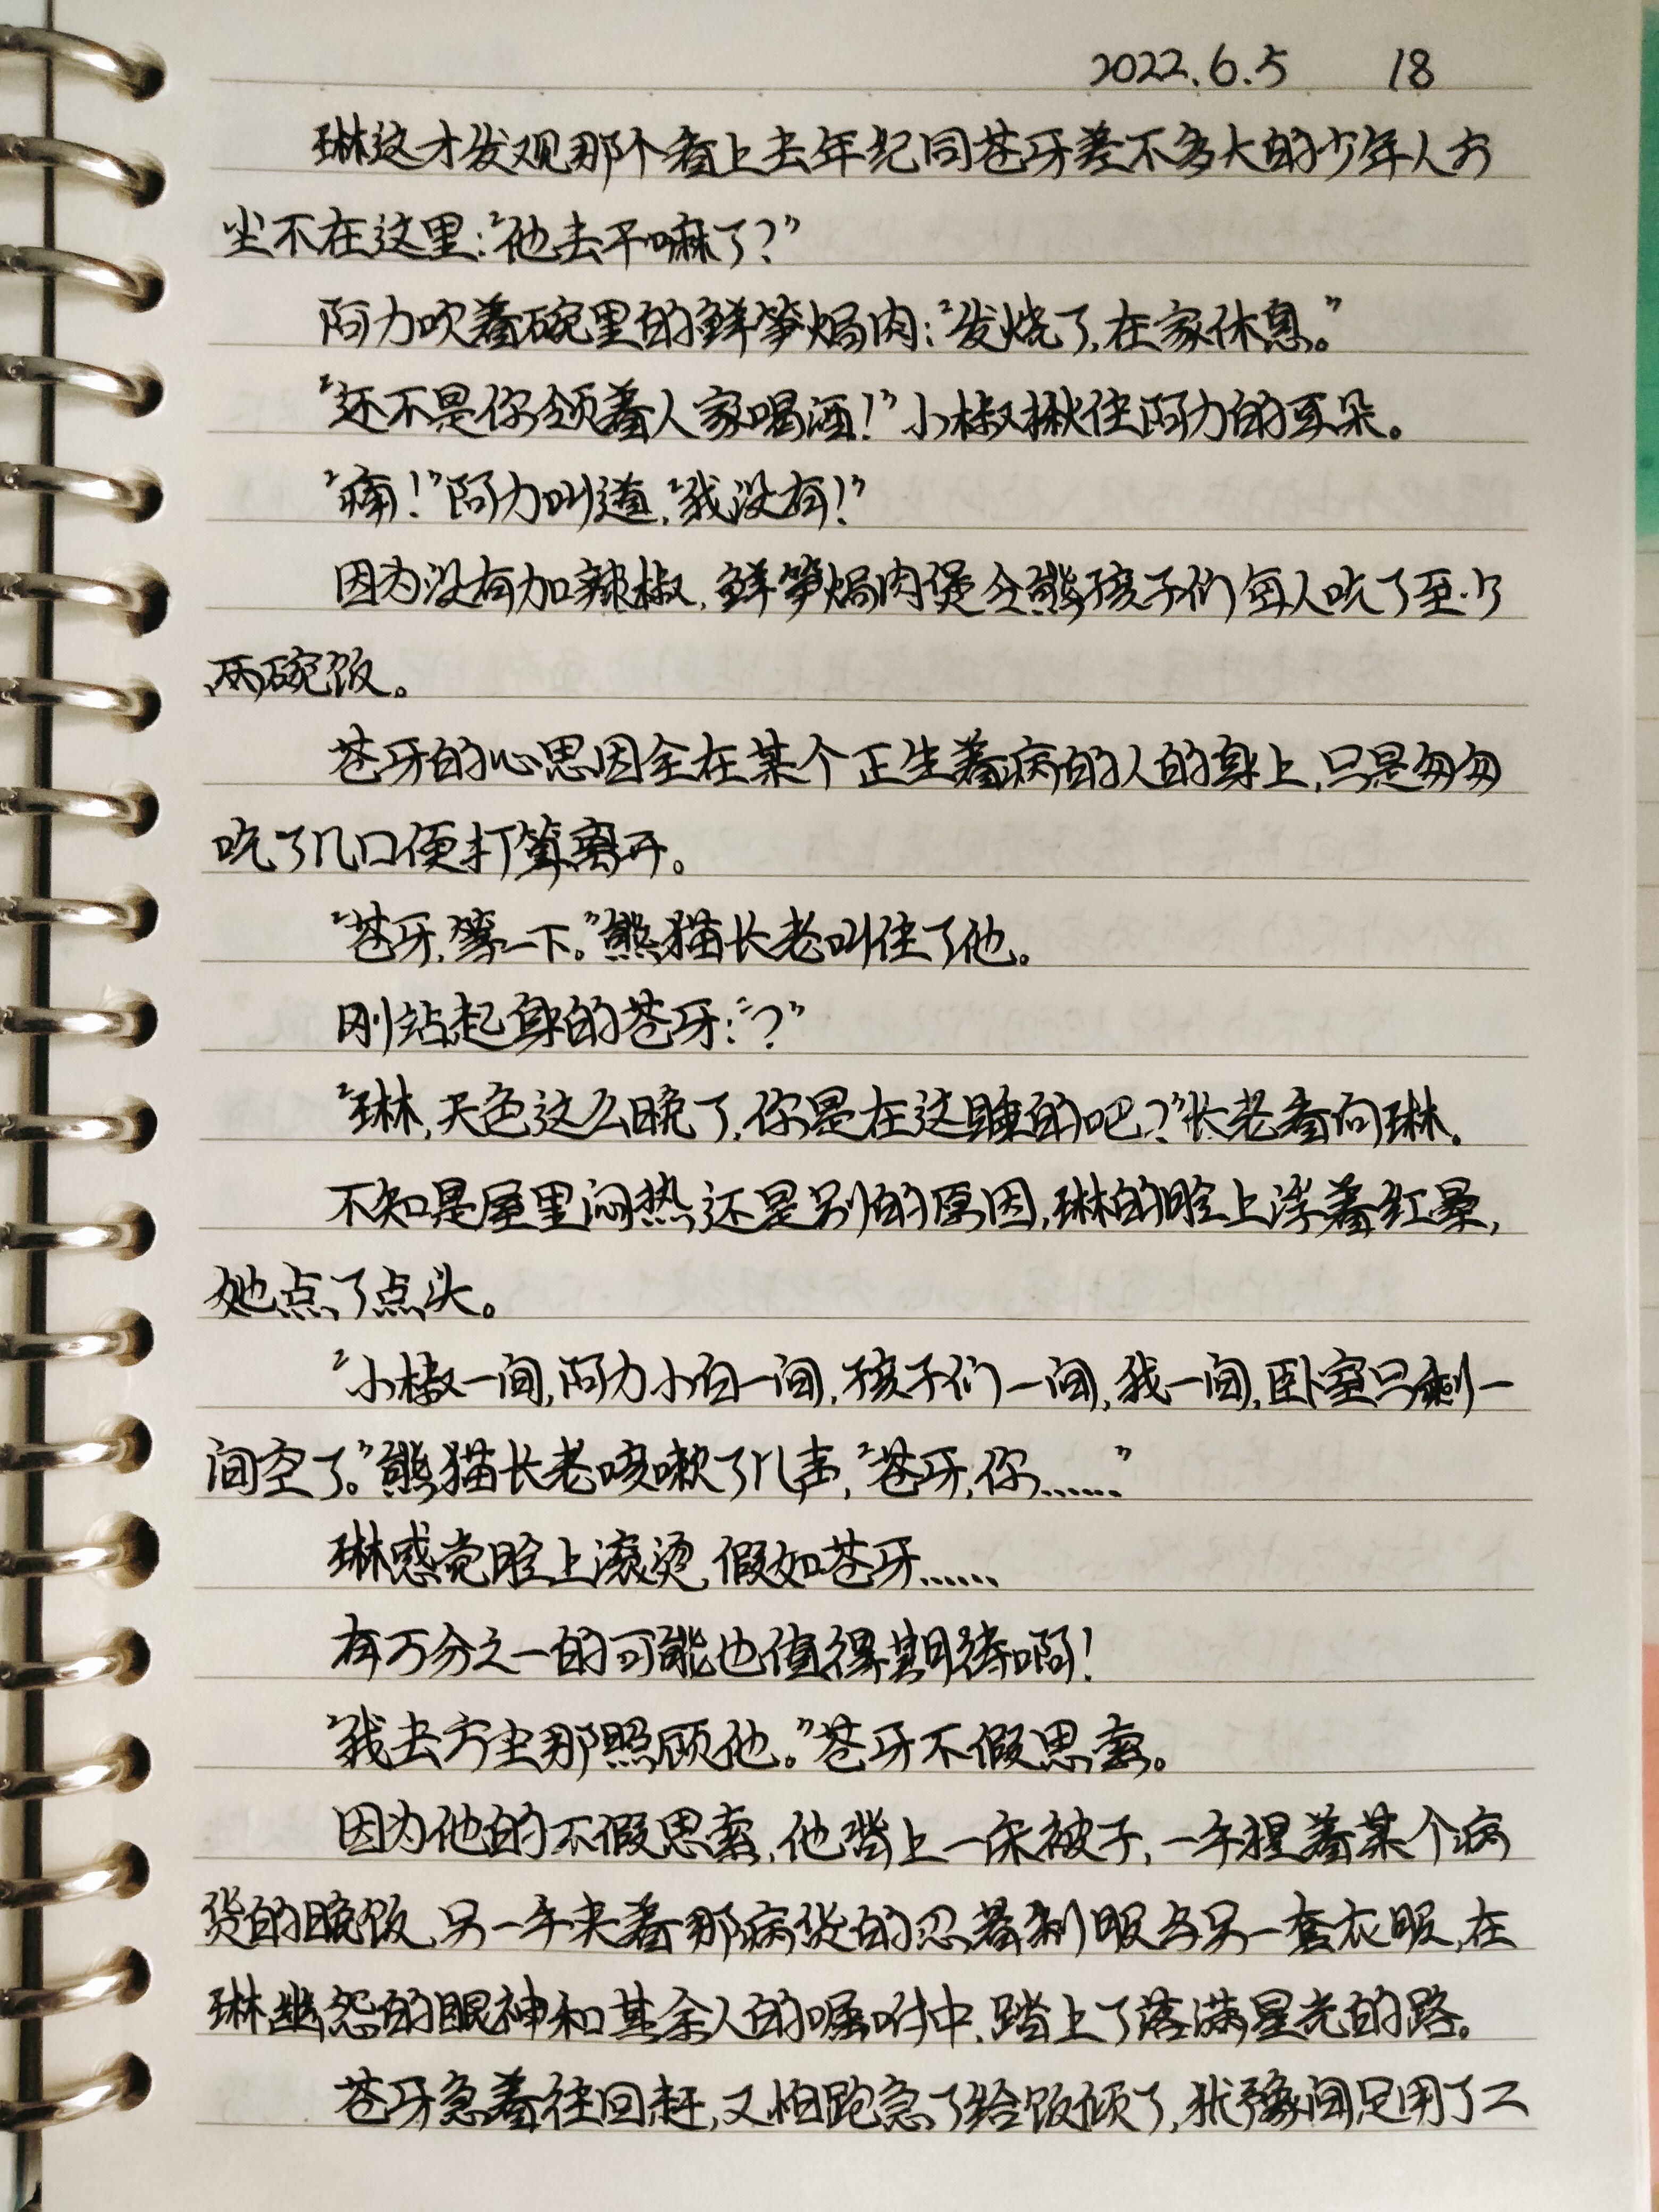 2022.6.5 18
琳这才发现那个看上去年纪同苍牙差不多大的少年人方
尘不在这里:“他去干嘛了?”
阿力吹着碗里的鲜笋焗肉:“发烧了,在家休息。”
“还不是你领着人家喝酒!”小椒揪住阿力的耳朵。
“痛!”阿力叫道,“我没有!”
因为没有加辣椒,鲜笋焗肉煲令熊孩子们每人吃了至少
两碗饭。
苍牙的心思因全在某个正生着病的人的身上,只是匆匆
吃了几口便打算离开。
“苍牙,等一下。”熊猫长老叫住了他。
刚站起身的苍牙:“?”
“琳,天色这么晚了,你是在这睡的吧?”长老看向琳。
不知是屋里闷热,还是别的原因,琳的脸上浮着红晕,
她点了点头。
“小椒一间,阿力小白一间,孩子们一间,我一间,卧室只剩一
间空了。”熊猫长老咳嗽了几声,“苍牙,你……”
琳感觉脸上滚烫,假如苍牙……
有万分之一的可能也值得期待啊!
“我去方尘那照顾他。”苍牙不假思索。
因为他的不假思索,他背上一床被子,一手提着某个病
货的晚饭,另一手夹着那病货的忍者制服与另一套衣服,在
琳幽怨的眼神和其余人的嘱咐中,踏上了落满星光的路。
苍牙急着往回赶,又怕跑急了给饭倾了,犹豫间足用了二